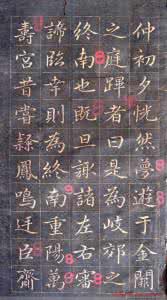 仲初夕恍然夢遊于金闕
之庭蹕者曰是為岐邠之
終南也既旦謝諸左右審
諦臨幸則為終南重陽萬
壽宮昔嘗隸鳳鳴臣齋